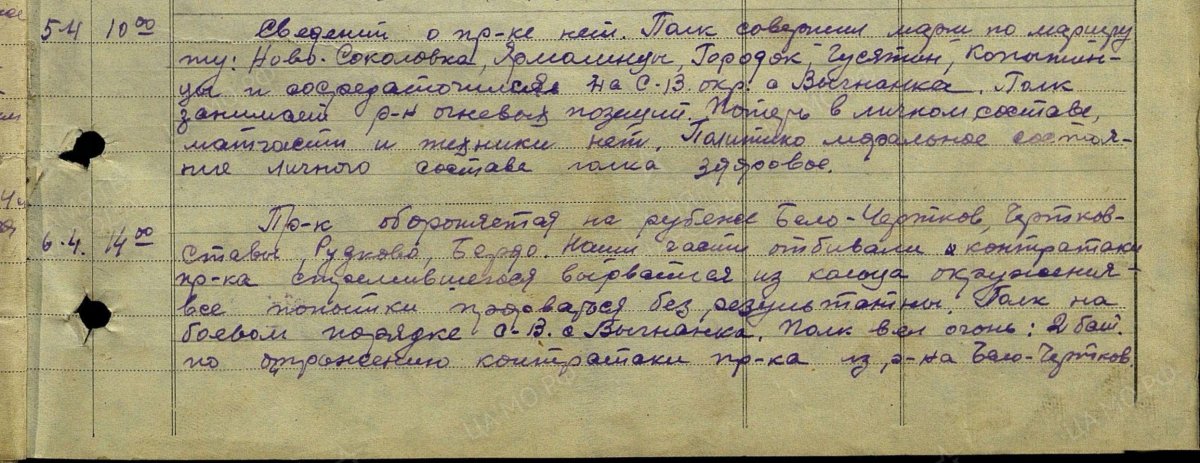 5.4 10⁰⁰ Сведений о пр-ке нет. Полк совершил марш по маршру
ту: Ново-Соколовка, Ярмолинцы, Городок, Гусятин, Копычин-
цы и сосредоточился на С-В. окр. с Выгнанка. Полк
занимает р-н огневых позиций. Потерь в личном составе,
матчасти и техники нет. Политико моральное состоя-
ние личного состава полка здоровое.
6.4. 14⁰⁰ Пр-к обороняется на рубеже Бело-Чертков, Чертков-
Ставы, Рудково, Бердо. Наши части отбивали контратаки
пр-ка стремившегося вырватся из кольца окружения -
все попытки прорваться без результатны. Полк на
боевом порядке С-В. с Выгнанка. Полк вел огонь: 2 бат.
по отражению контратаки пр-ка из р-на Бело-Чертков.
ЦАМО.РФ
ЦАМО.РФ